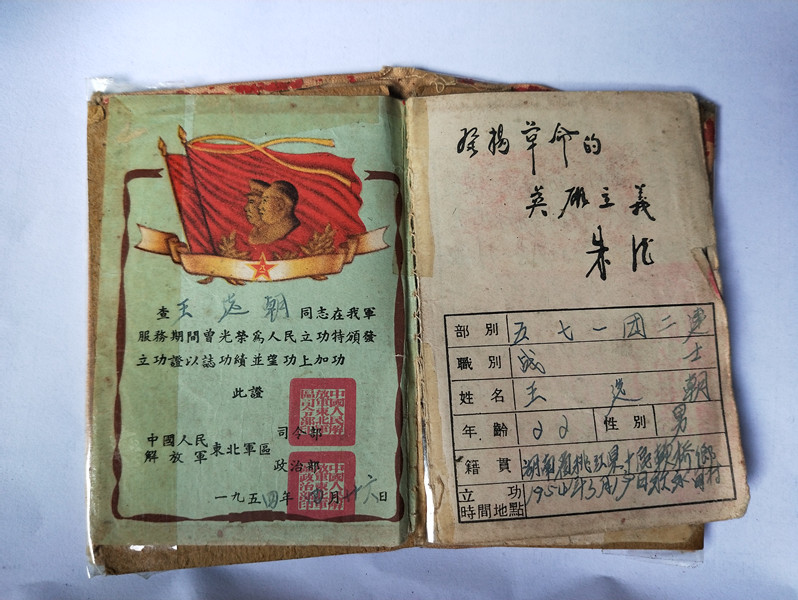 查王选朝同志在我軍
服務期間曾光榮爲人民立功特頒發
立功證以誌功績並望功上加功
此證
中國人民解放軍東北軍區
司令部
政治部
一九五四年四月廿六日
發揚革命的
英雄主義
朱德
部別 五七一团二連
職別 战士
姓名 王选朝
年齡 22 性別 男
籍貫 湖南省桃江县十區 桥鄉村
立功時間地點 1954年3月19日